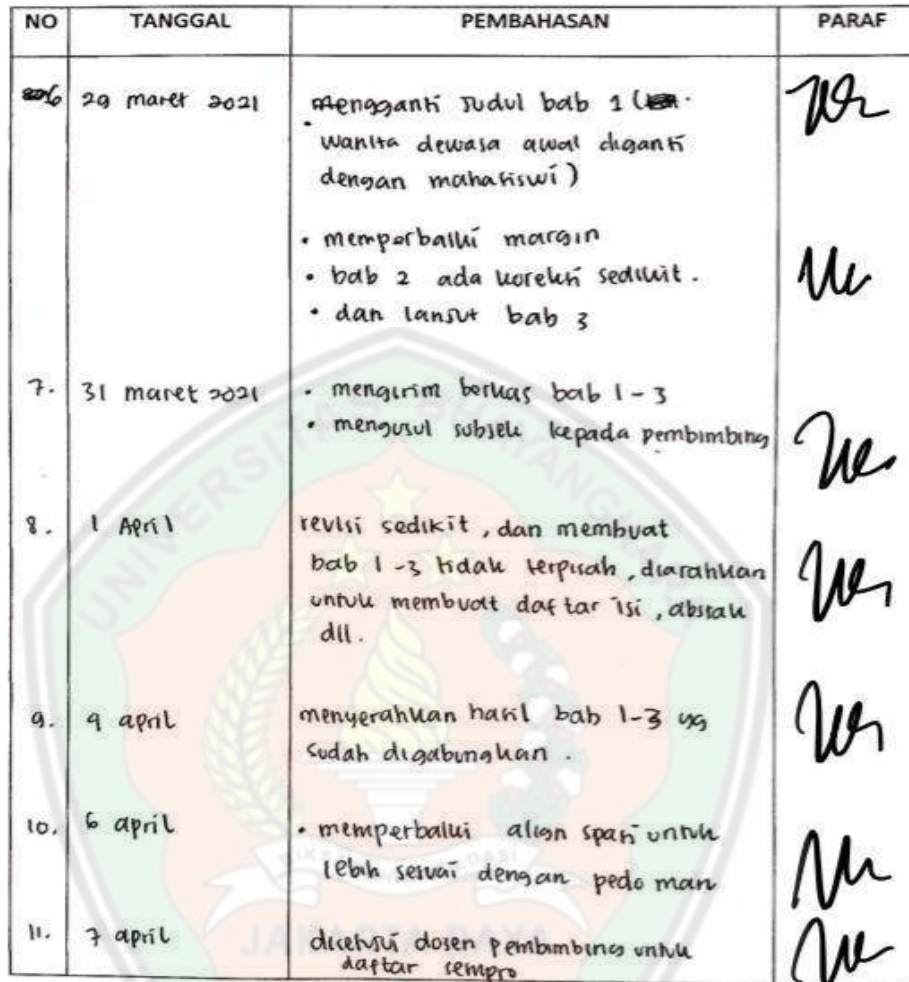 NO TANGGAL PEMBAHASAN PARAF
6 29 maret 2021 mengganti judul bab 1 (
wanita dewasa awal diganti
dengan mahasiswi)
• memperbaiki margin
• bab 2 ada koreksi sedikit.
• dan lanjut bab 3
7. 31 maret 2021 • mengirim berkas bab 1-3
• mengusul subjek kepada pembimbing
8. 1 April revisi sedikit, dan membuat
bab 1-3 tidak terpisah, diarahkan
untuk membuat daftar isi, abstrak
dll.
9. 4 april menyerahkan hasil bab 1-3 yg
sudah digabungkan.
10. 6 april • memperbaiki align spasi untuk
lebih sesuai dengan pedoman
11. 7 april disetujui dosen pembimbing untuk
daftar sempro
UNIVERSITAS BHAYANGKARA
JAKARTA RAYA